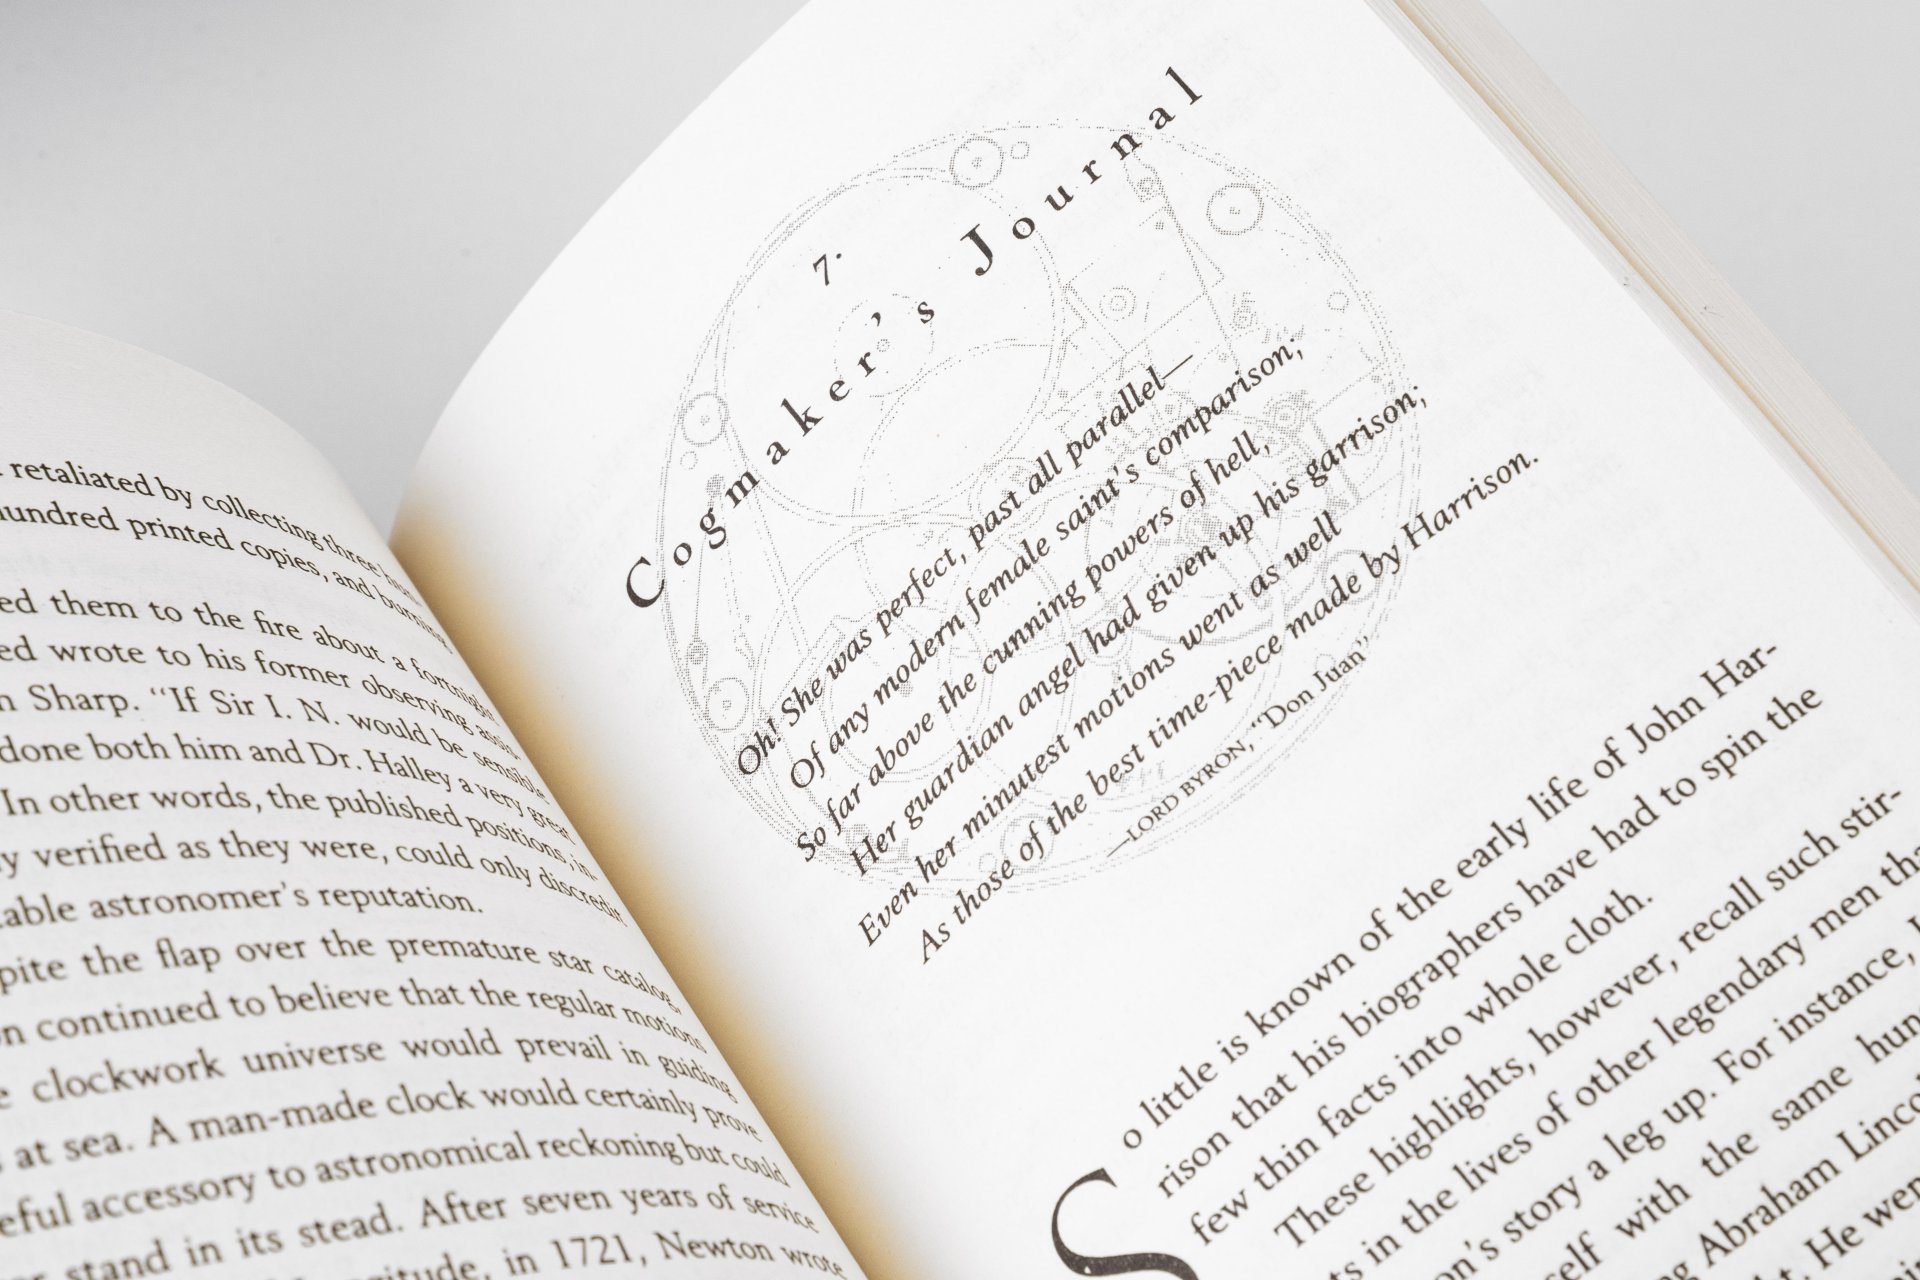 retaliated by collecting three hun-
hundred printed copies, and burning
ed them to the fire about a fortnight
ed wrote to his former observing assis-
Sharp. “If Sir I. N. would be sensible
done both him and Dr. Halley a very great
In other words, the published positions, in-
verified as they were, could only discredit
able astronomer’s reputation.
pite the flap over the premature star catalog,
on continued to believe that the regular motions
clockwork universe would prevail in guiding
at sea. A man-made clock would certainly prove
eful accessory to astronomical reckoning but could
stand in its stead. After seven years of service
gitude, in 1721, Newton wrote
7.
Cogmaker’s Journal
Oh! She was perfect, past all parallel—
Of any modern female saint’s comparison;
So far above the cunning powers of hell,
Her guardian angel had given up his garrison;
Even her minutest motions went as well
As those of the best time-piece made by Harrison.
—LORD BYRON, “Don Juan”
So little is known of the early life of John Har-
rison that his biographers have had to spin the
few thin facts into whole cloth.
These highlights, however, recall such stir-
ts in the lives of other legendary men tha
on’s story a leg up. For instance, L
self with the same hun
Abraham Lincol
He wen